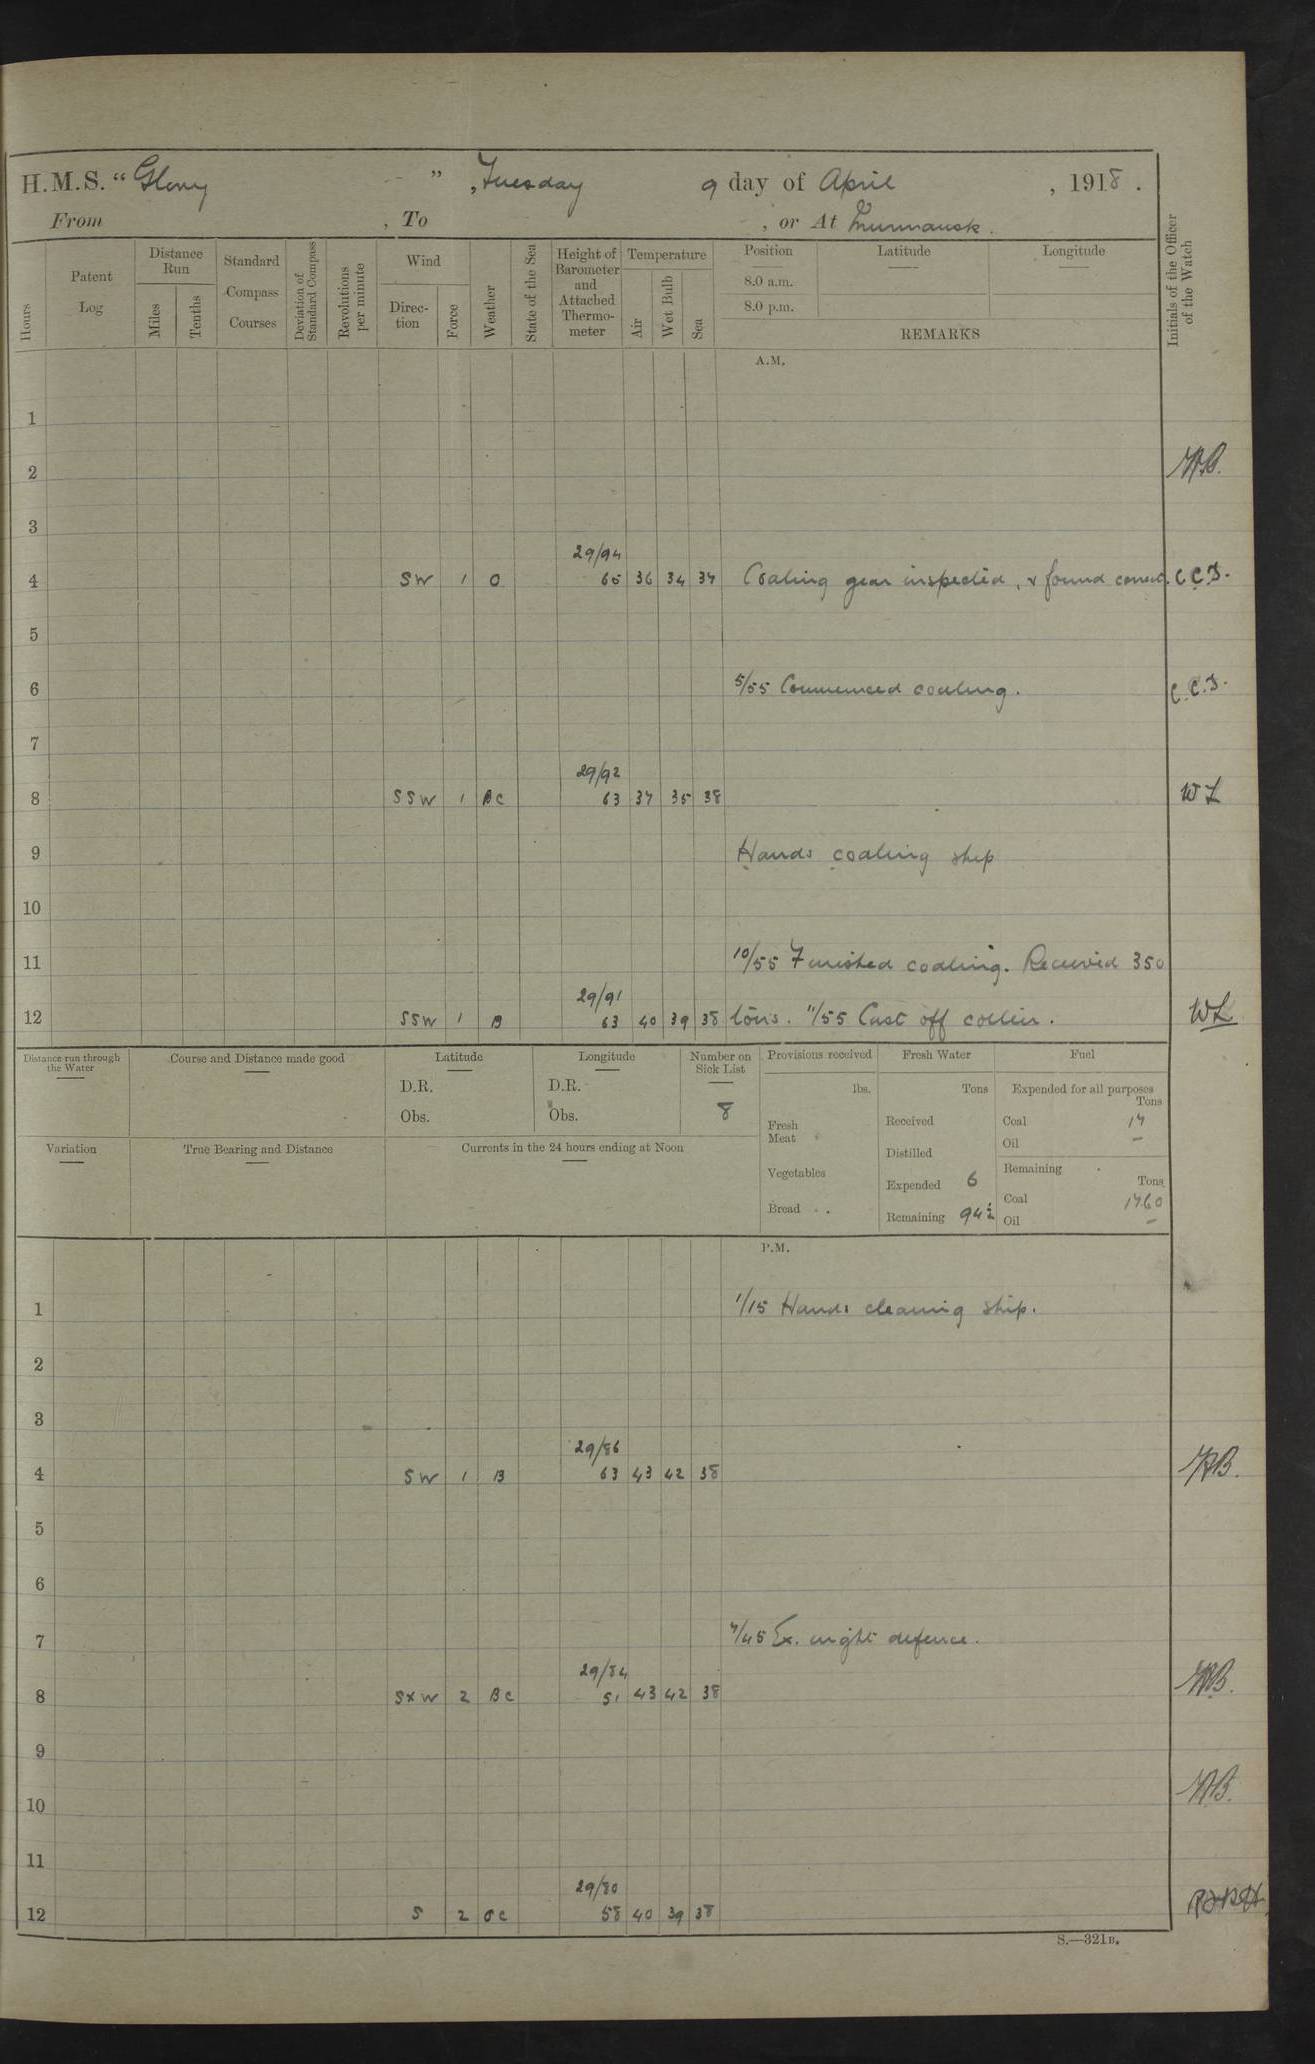 H.M.S. "Glory", Tuesday 9 day of April, 1918.
From , To , or At Murmansk.
Hours
Patent Log
Distance Run
Miles
Tenths
Standard Compass Courses
Deviation of Standard Compass
Revolutions per minute
Wind
Direc-tion
Force
Weather
State of the Sea
Height of Barometer and Attached Thermo-meter
Temperature
Air
Wet Bulb
Sea
Position
Latitude
Longitude
8.0 a.m.
8.0 p.m.
REMARKS
Initials of the Officer of the Watch
A.M.
1
2
3
29/94
4 SW 1 O 65 36 34 37 Coaling gear inspected, & found correct. C.C.J.
5
6 5/55 Commenced coaling. C.C.J.
7
29/92
8 SSW 1 BC 63 37 35 38 WL
9 Hands coaling ship
10
11 10/55 Finished coaling. Received 350
29/91
12 SSW 1 B 63 40 39 38 tons. 11/55 Cast off collier. WL
Distance run through the Water
Course and Distance made good
Latitude
D.R.
Obs.
Longitude
D.R.
Obs.
Number on Sick List
8
Provisions received
lbs.
Fresh Meat
Vegetables
Bread
Fresh Water
Tons
Received
Distilled
Expended 6
Remaining 94½
Fuel
Expended for all purposes
Tons
Coal 17
Oil –
Remaining
Tons
Coal 1760
Oil –
Variation
True Bearing and Distance
Currents in the 24 hours ending at Noon
P.M.
1 1/15 Hands cleaning ship.
2
3
29/86
4 SW 1 B 63 43 42 38
5
6
7 7/45 Ex. night defence.
29/84
8 SxW 2 BC 51 43 42 38
9
10
11
29/80
12 S 2 OC 58 40 39 38
S.—321B.